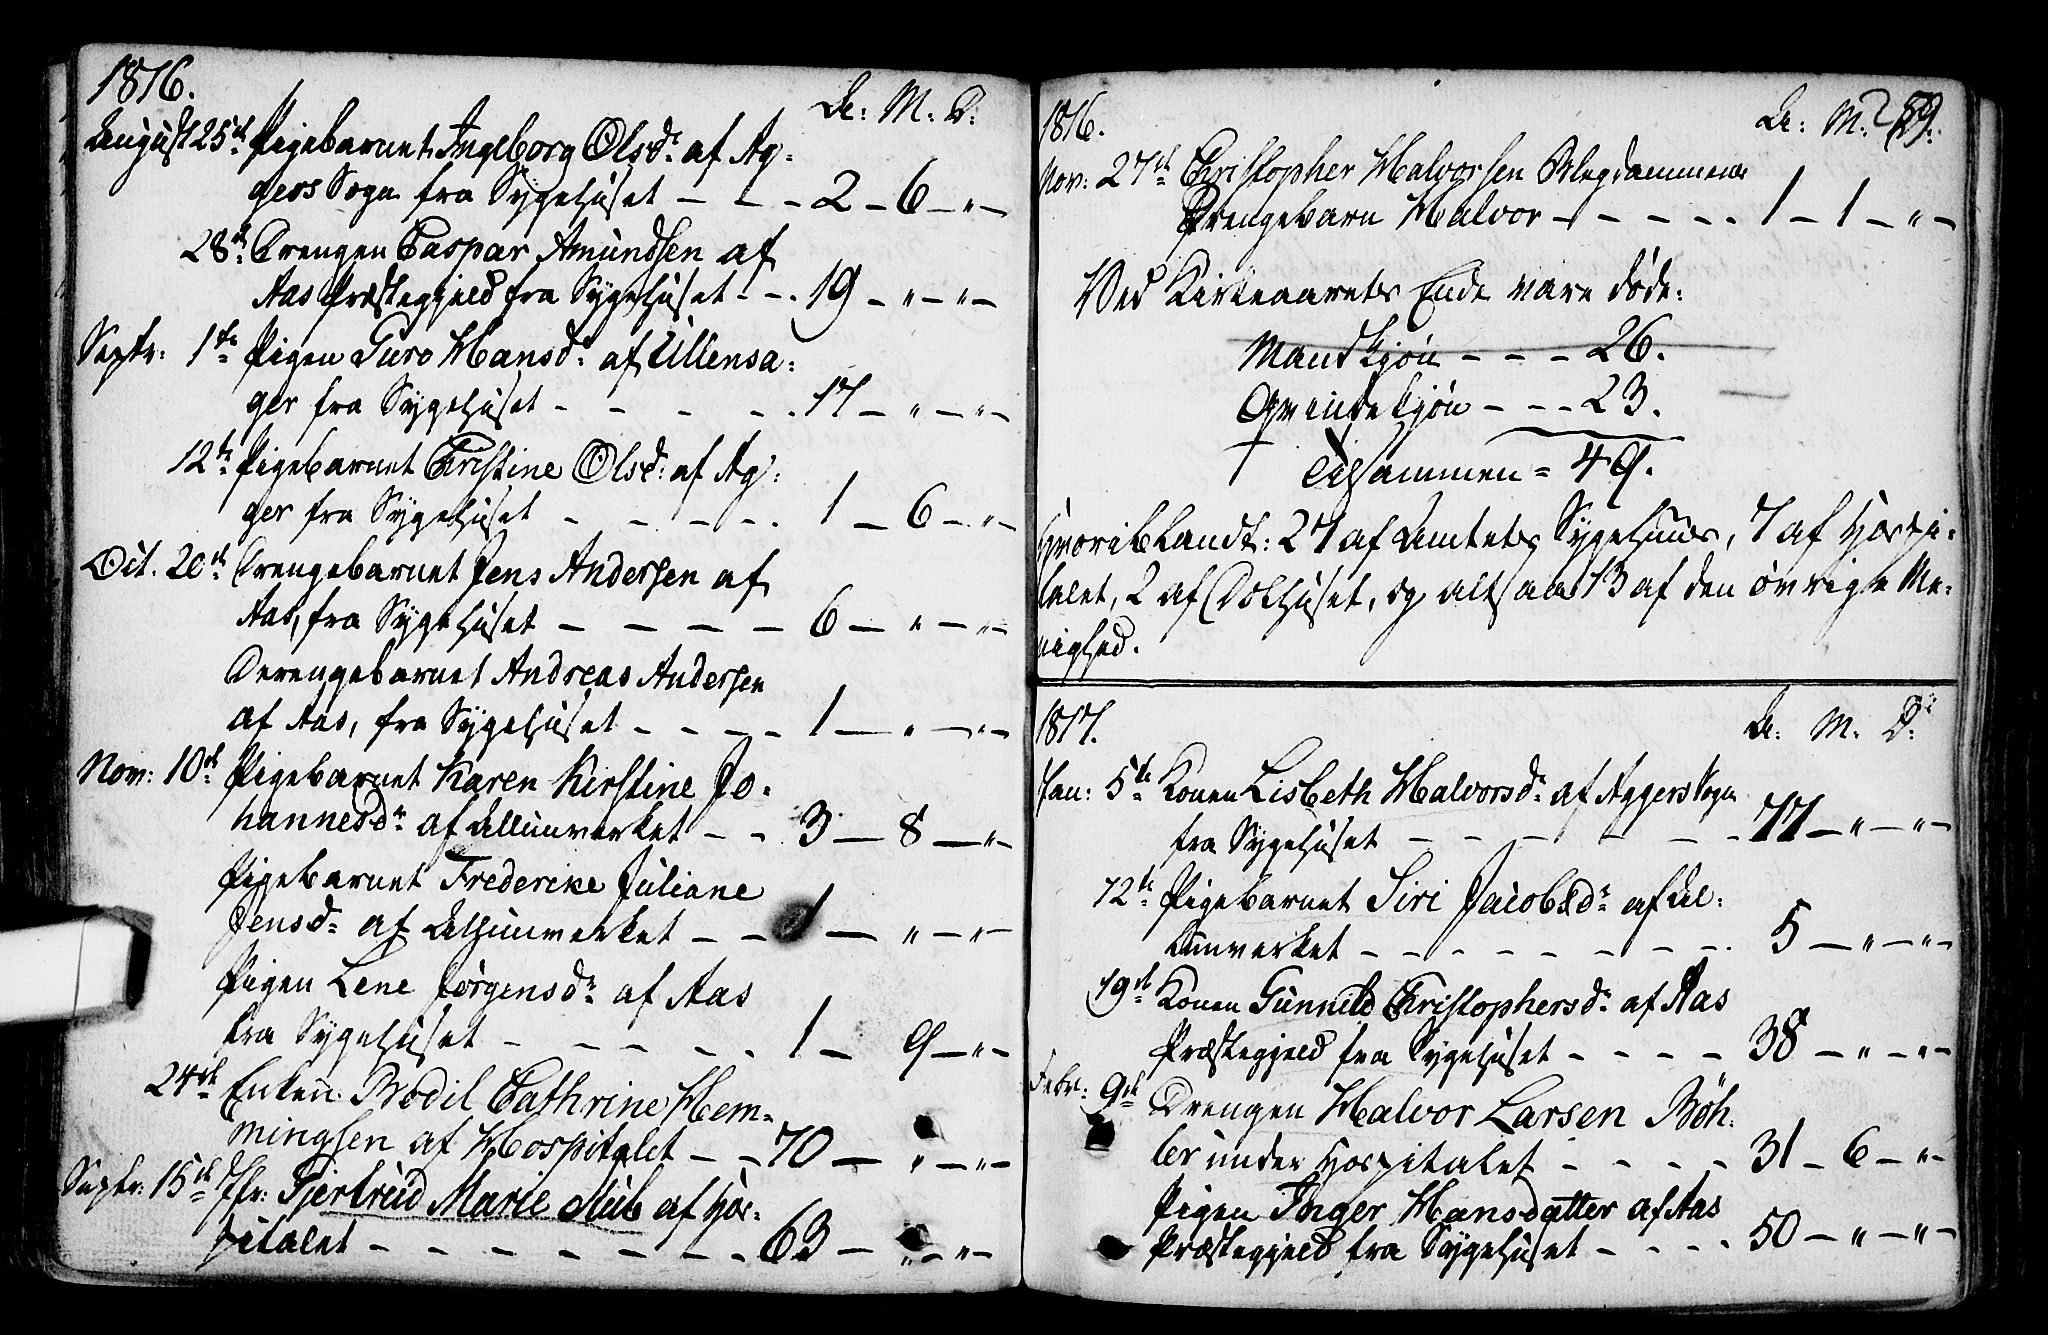 1816.
Aar: M. D:
August 25de Pigebarnet Ingeborg Olsdr af Ag:
gers Sogn fra Sygehuset - - - 2 - 6 - " -
28de Drengen Caspar Amundsen af
Aas Præstegjeld fra Sygehuset - - . 19 - " - " -
Septr: 1ste Pigen Guro Hansdr af Ullensa:
ger fra Sygehuset - - - - . 17 - " - " -
12te Pigebarnet Christine Olsdr af Ag:
ger fra Sygehuset - - - - . 1 - 6 - " -
Oct. 20de Drengebarnet Jens Andersen af
Aas, fra Sygehuset - - - - 6 - " - " -
Drengebarnet Andreas Andersen
af Aas, fra Sygehuset - - - - 1 - " - " -
Nov: 10de Pigebarnet Karen Kirstine Jo:
hannesdr af Allunverket - - 3 - 8 - " -
Pigebarnet Frederike Juliane
Jensdr af Allunverket - - 1 - " - " -
Pigen Lene Jørgensdr af Aas
fra Sygehuset - - - - - . 1 - 9 - " -
24de Enken Bodil Cathrine Hem-
mingsen af Hospitalet - - 70 - " - " -
Septr: 15de Jfr: Gjertrud Marie Aüb af Hos:
pitalet - - - - - - - - 63 - " - " -
1816. Aar: M. D:
259.
Nov: 27de Christopher Halvorsen Blegdammens
Drengebarn Halvor - - - - - 1 - 1 - " -
Ved Kirkeaarets Ende vare døde:
Mandkjøn - - - 26.
Qvindekjøn - - - 23.
Tilsammen = 49.
hvoriblandt: 27 af Amtets Sygehuus, 7 af Hospi-
talet, 2 af Dolhuset, og altsaa 13 af den øvrige Me-
nighed.
1817. Aar: M. D:
Jan: 5te Konen Lisbeth Halvorsdr af Aggers Sogn
fra Sygehuset - - - - - - 77 - " - " -
12te Pigebarnet Siri Jacobsdr af Al:
lunverket - - - - - - - - . 5 - " - " -
19de Konen Gunnild Christophersdr af Aas
Præstegjeld fra Sygehuset - - - - 38 - " - " -
Febr: 9de Drengen Halvor Larsen Böh:
ler under Hospitalet - - - - 31 - 6 - " -
Pigen Inger Hansdatter af Aas
Præstegjeld fra Sygehuset - - - - 50 - " - " -